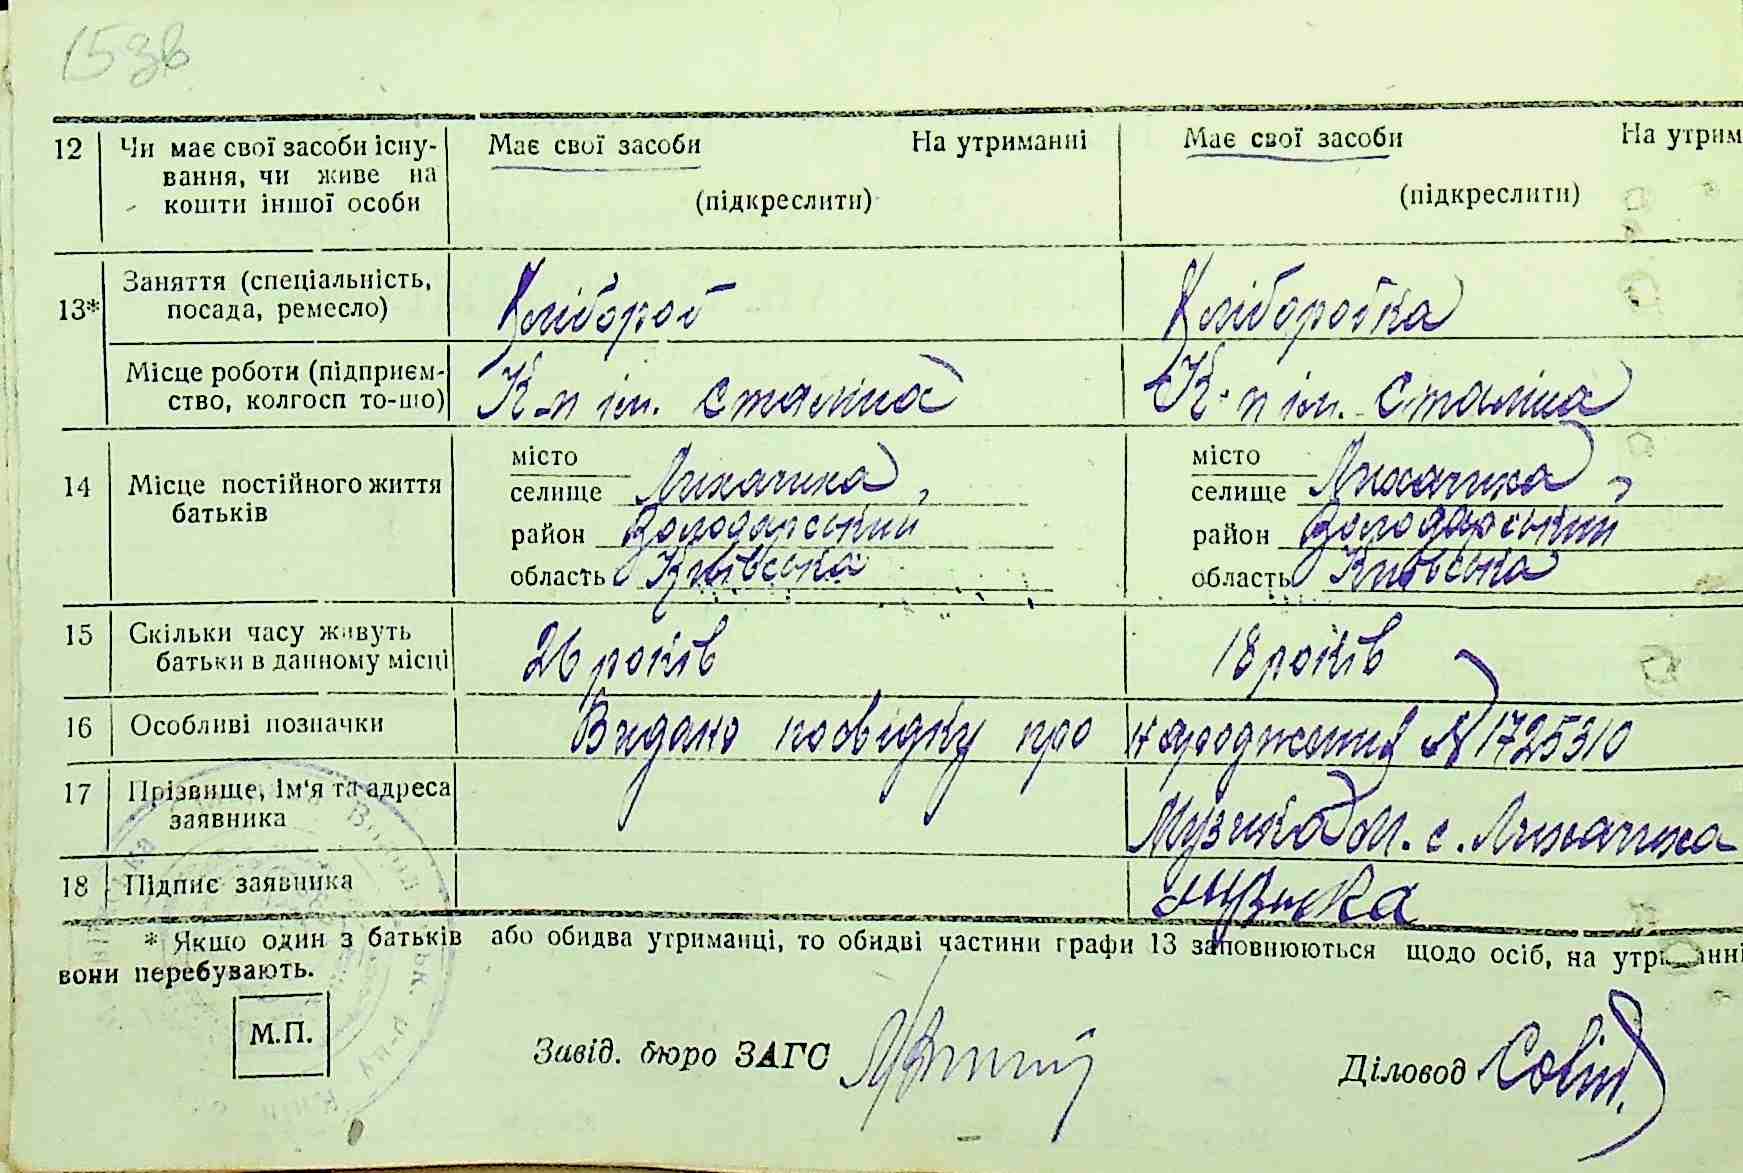 153в
12 Чи має свої засоби існу- Має свої засоби На утриманні Має свої засоби На утрим
вання, чи живе на
кошти іншої особи (підкреслити) (підкреслити)
13* Заняття (спеціальність,
посада, ремесло) Хлібороб Хліборобка
Місце роботи (підприєм-
ство, колгосп то-що) К-п ім. Сталіна К-п ім. Сталіна
місто місто
14 Місце постійного життя селище Лихачиха, селище Лихачиха,
батьків район Володарський район Володарський
область Київська область Київська
15 Скільки часу живуть
батьки в данному місці 26 років 18 років
16 Особливі позначки Видано посвідку про народження № 1725310
17 Прізвище, Ім'я та адреса
заявника Музика М. с. Лихачиха
18 Підпис заявника Музыка
* Якщо один з батьків або обидва утриманці, то обидві частини графи 13 заповнюються щодо осіб, на
вони перебувають.
М.П. Завід. бюро ЗАГС Діловод